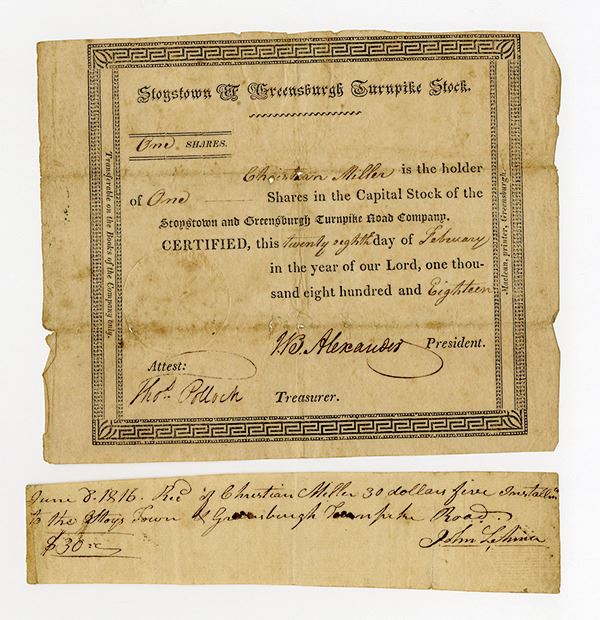 Stoystown & Greensburgh Turnpike Stock.
One SHARES.
Christian Miller is the holder
of One Shares in the Capital Stock of the
Stoystown and Greensburgh Turnpike Road Company.
CERTIFIED, this twenty eighth day of February
in the year of our Lord, one thou-
sand eight hundred and Eighteen
J. B. Alexander President.
Attest:
Thos. Pollock Treasurer.
Transferable on the Books of the Company only.
Maclean, printer, Greensburgh.
June 8. 1816. Recd of Christian Miller 30 dollars five
to the Stoys Town & Greensburgh Turnpike Road.
$30
John